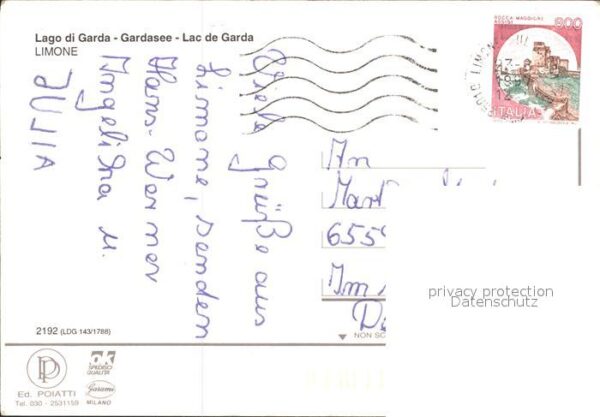 Lago di Garda - Gardasee - Lac de Garda
LIMONE
Viele Grüße aus
Limone, senden
Hans-Werner
Angelika u.
JULIA
ROCCA MAGGIORE
ASSISI
800
ITALIA
An
Mart
655
Im
privacy protection
Datenschutz
2192 (LDG 143/1788)
NON SC
PD
Ed. POIATTI
Tel. 030 - 2531159
OK
SPEDISCI
QUALITÀ
Garami
MILANO